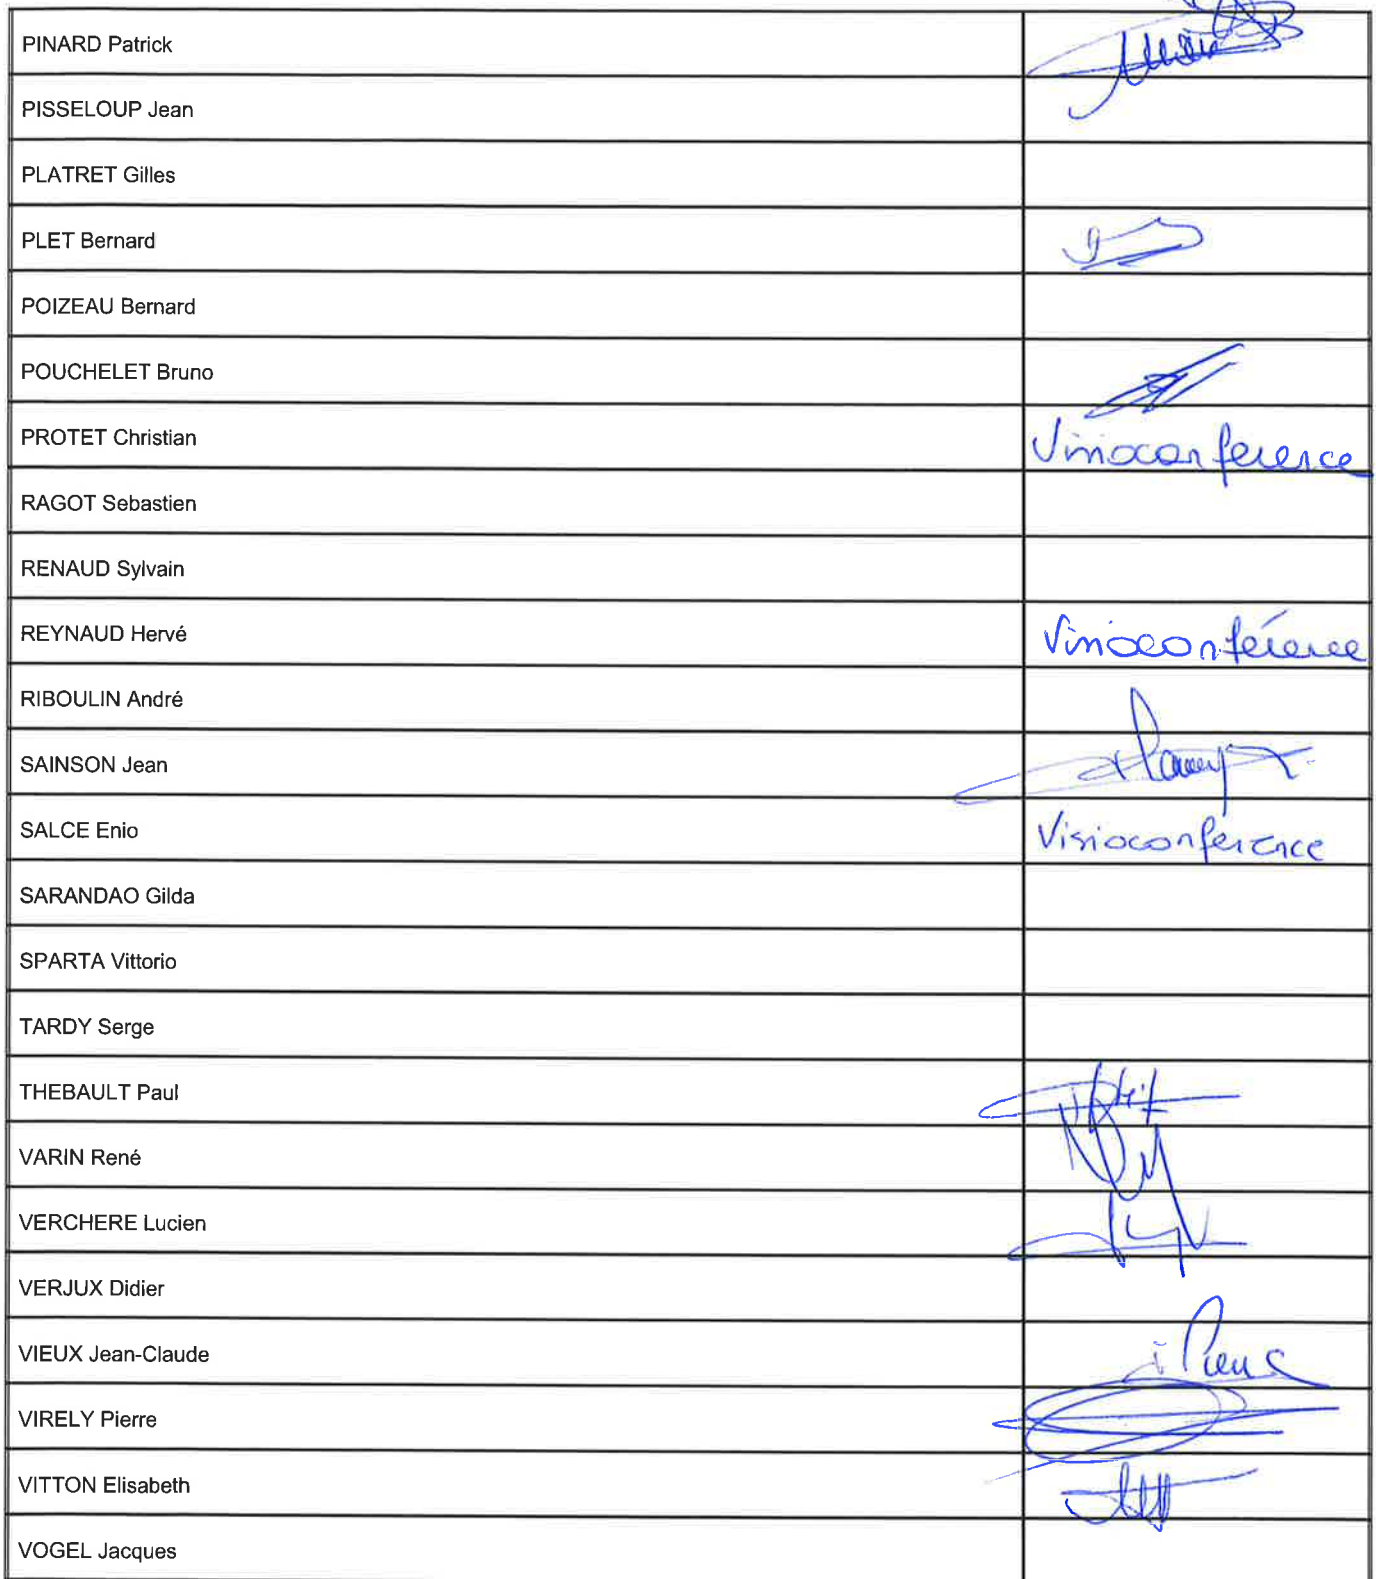 PINARD Patrick
PISSELOUP Jean
PLATRET Gilles
PLET Bernard
POIZEAU Bernard
POUCHELET Bruno
PROTET Christian Visioconference
RAGOT Sebastien
RENAUD Sylvain
REYNAUD Hervé Visioconférence
RIBOULIN André
SAINSON Jean
SALCE Enio Visioconference
SARANDAO Gilda
SPARTA Vittorio
TARDY Serge
THEBAULT Paul
VARIN René
VERCHERE Lucien
VERJUX Didier
VIEUX Jean-Claude
VIRELY Pierre
VITTON Elisabeth
VOGEL Jacques